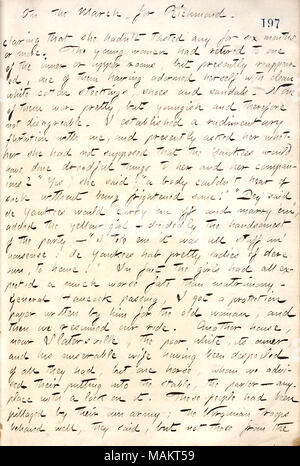 On the March for Richmond.
197
claring that she hadn't tasted any for six months
or more. The young women had retired to one
of the inner or upper rooms, but presently reappear-
ed, one of them having adorned herself with clean
white cotton stockings, shoes and sandals. None
of them were pretty but youngish and therefore
not disagreeable. I established a rudimentary
flirtation with me, and presently asked her wheth-
er she had not supposed that the Yankees would
have done dreadful things to her and her compan-
ions? "Yes," she said "a body couldn't hear of
such without being frightened some!" "Dey said
de Yankees would carry em off and marry em"
added the yellow girl — decidedly the handsomest
of the party — "I tole em it was all stuff an'
nonsense! de Yankees hab pretty ladies of dere
own, to home." In fact the girls had all ex-
pected a much worse fate than matrimony.
General Hancock passing, I got a protection
paper written by him for the old woman, and
then we resumed our ride. Another house,
near Slatersville, the poor white, its owner
and his miserable wife having been despoiled
of all they had but one horse, whom we advi-
sed their putting into the stable, the parlor — any-
place with a lock on it. These people had been
pillaged by their own army; the Virginian troops
behaved well, they said, but not those from the
alamy
MAKT59